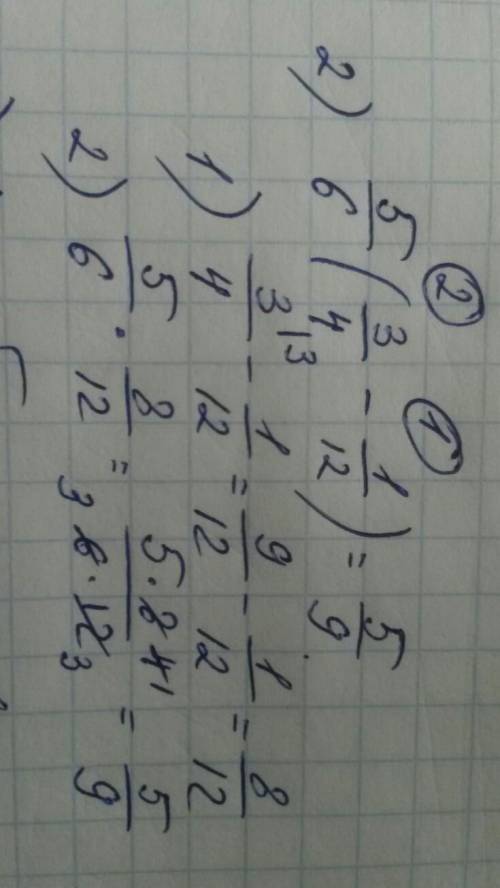 2) 5/6 (3/4 - 1/12) = 5/9
② ①
1) 3/4 |3 - 1/12 = 9/12 - 1/12 = 8/12
2) 5/6 · 8/12 = 5·8 4 1 / 3 6·12 3 = 5/9